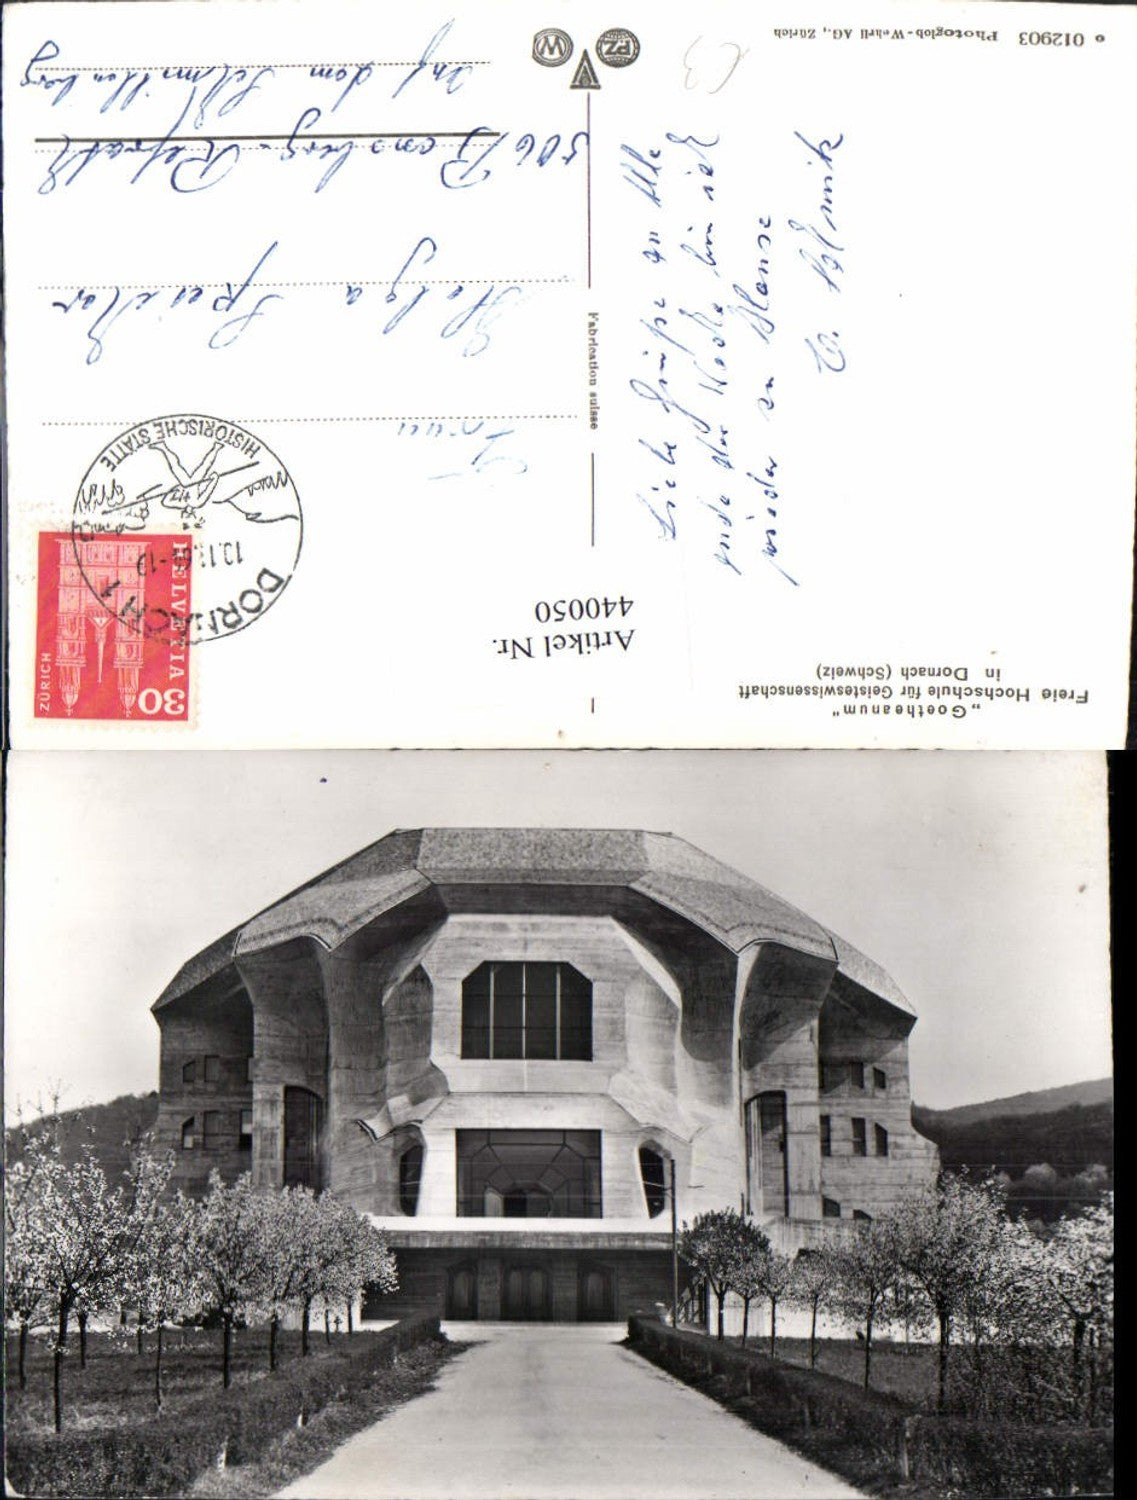 „Goetheanum"
Freie Hochschule für Geisteswissenschaft
in Dornach (Schweiz)
Artikel Nr.
440050
Liebe Grüße an Alle
ende der Woche bin ich
wieder zu Hause
Fabrication suisse
© 012903 Photoglob-Wehrli AG., Zürich
PZ
W
HELVETIA
30
ZÜRICH
DORNACH 1
HISTORISCHE STÄTTE
Frau
Helga Speidler
506 Bensberg-Refrath
Auf dem Schmittenberg